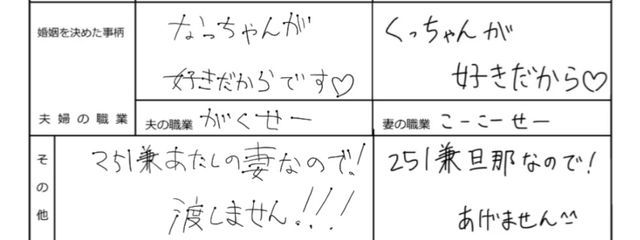 婚姻を決めた事柄
なっちゃんが
好きだからです♡
くっちゃんが
好きだから♡
夫婦の職業
夫の職業 がくせー
妻の職業 こーこーせー
その他
251兼あたしの妻なので!
渡しません!!!
251兼旦那なので!
あげません^^